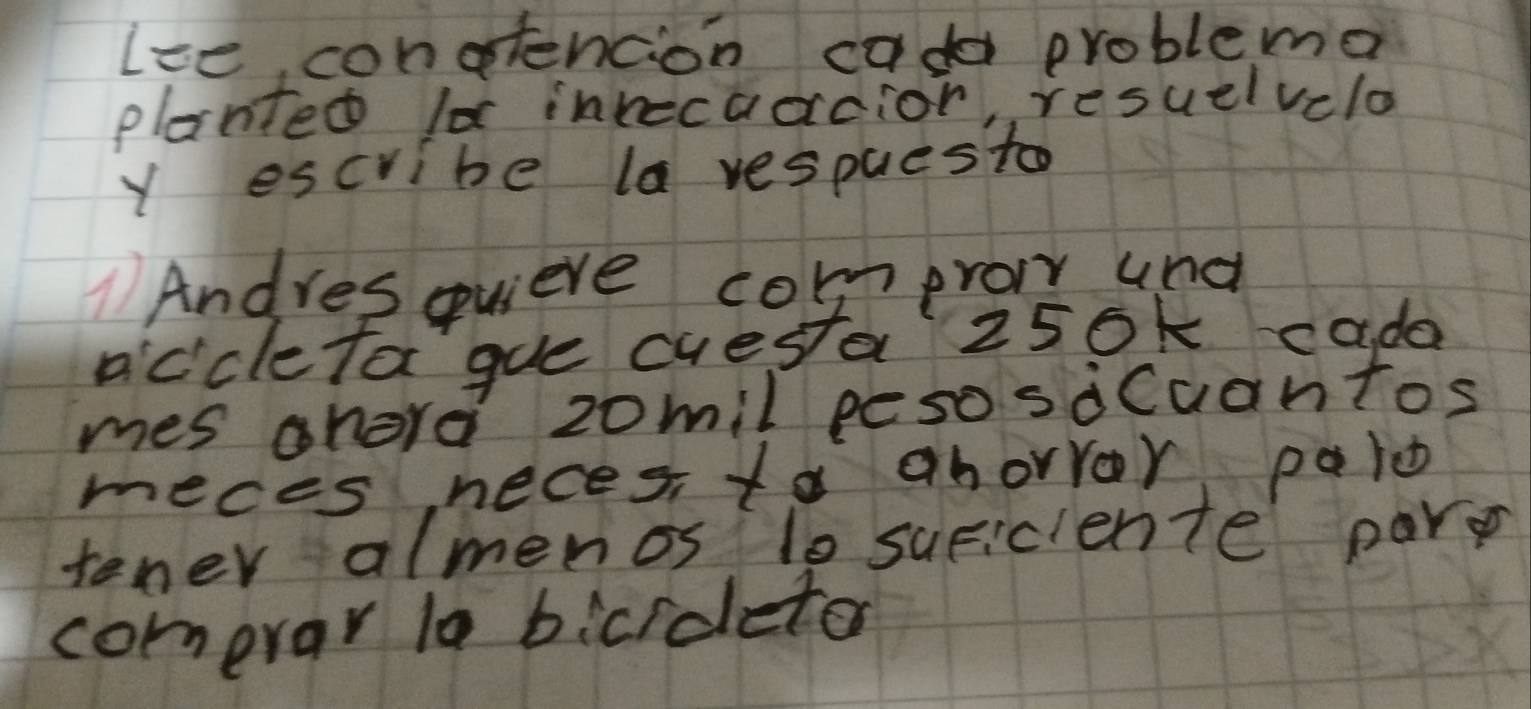 Lee, con atención cada problema
plantea la inrecuacion, resuelvelo
y escribe la respuesta
1) Andres quiere comprar una
bicicleta que cuesta 250k cada
mes ahora 20mil pesos ¿Cuantos
meces necesita ahorrar para
tener almenos lo suficiente para
comprar la bicicleta